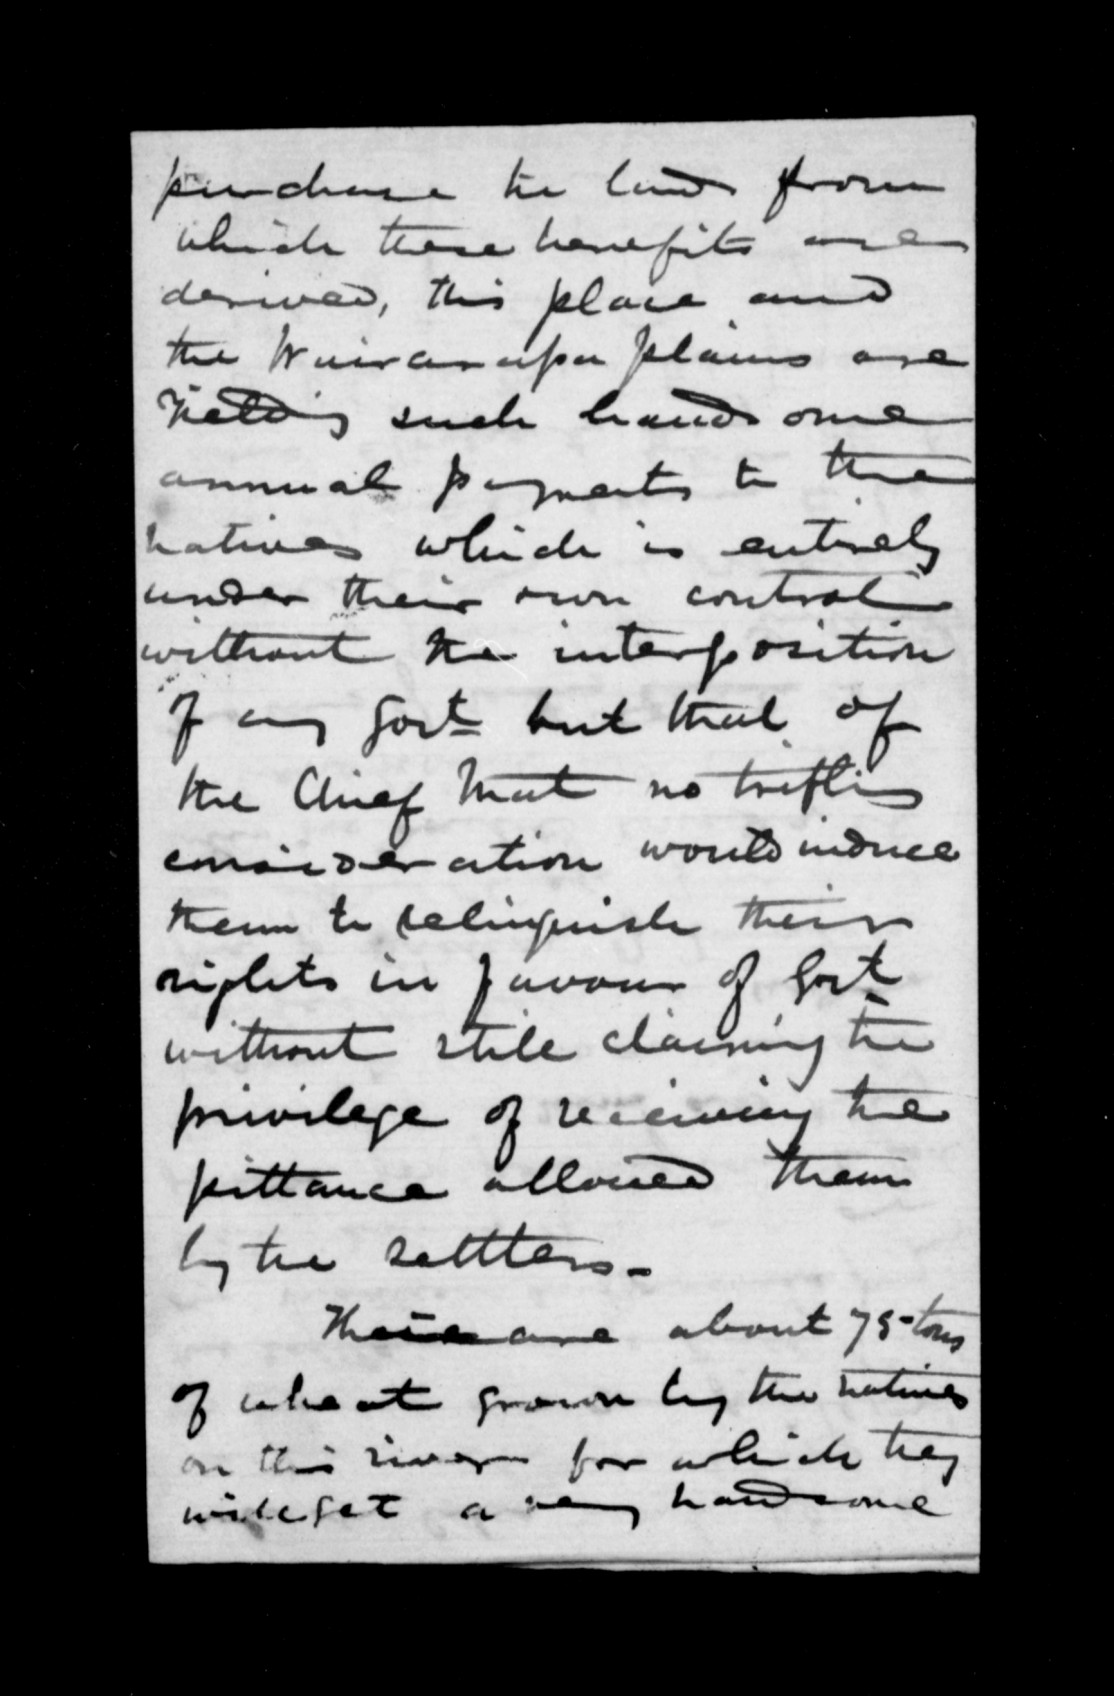 purchase the lands from
which these benefits are
derived, this place and
the Wairarapa plains are
yielding such handsome
annual payments to the
natives which is entirely
under their own control
without the interposition
of any Govt but that of
the Chief that no trifling
consideration would induce
them to relinquish their
rights in favour of Govt
without still claiming the
privilege of receiving the
pittance allowed them
by the settlers.
There are about 75 tons
of wheat grown by the natives
on this river for which they
will get a very handsome